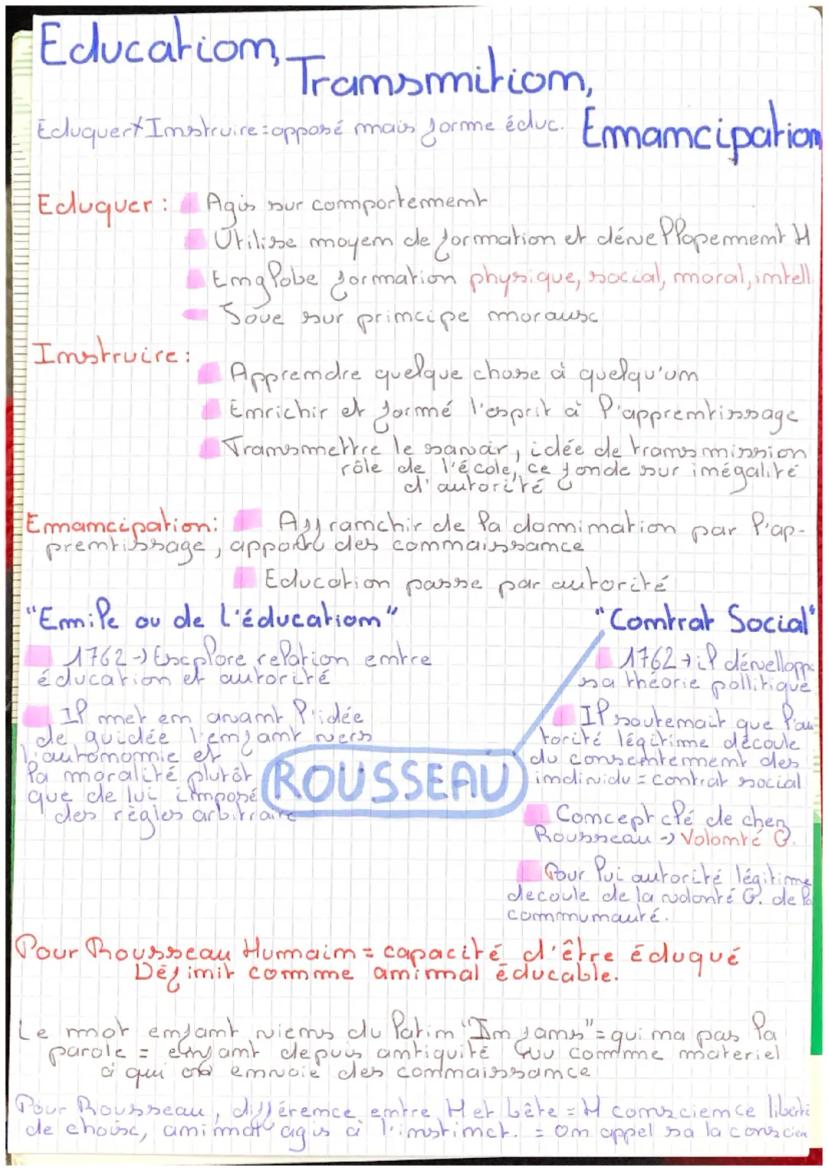 Education,
Transmition,
Emancipation
Eduquer≠Instruire: opposé mais forme éduc.
Eduquer: Agis sur comportement
Utilise moyen de formation et dévelloppement H
Englobe formation physique, social, moral, intell
Sove sur principe moraux
Instruire:
Apprendre quelque chose à quelqu'un
Enrichir et formé l'esprit à l'apprentissage
Transmettre le savoir, idée de transmission
rôle de l'école, ce fonde sur inégalité
d'autorité
Emancipation: Affranchir de la domination par l'ap-
prentissage, apporte des connaissance
Education passe par autorité
"Emile ou de l'éducation"
1762 → Explore relation entre
éducation et autorité
Il met en avant l'idée
de guidée l'enfant vers
l'autonomie et
la moralité plutôt
que de lui imposé
des règles arbitraire
ROUSSEAU
"Contrat Social"
1762 → il dévellopp
sa théorie pollitique
Il soutenait que l'au-
torité légitime découle
du consentement des
individu = contrat social
Concept clé de chez
Rousseau → Volonté G.
Pour lui autorité légitime
decoule de la volonté G. de la
communauté.
Pour Rousseau Humain = capacité d'être éduqué
Définit comme animal éducable.
Le mot enfant viens du latin "In fans" = qui ma pas la
parole = enfant depuis antiquité vu comme materiel
à qui on envoie des connaissance
Pour Rousseau, différence entre H et bête = H conscience liberté
de choix, animal agis à l'instinct. = on appel sa la conscien